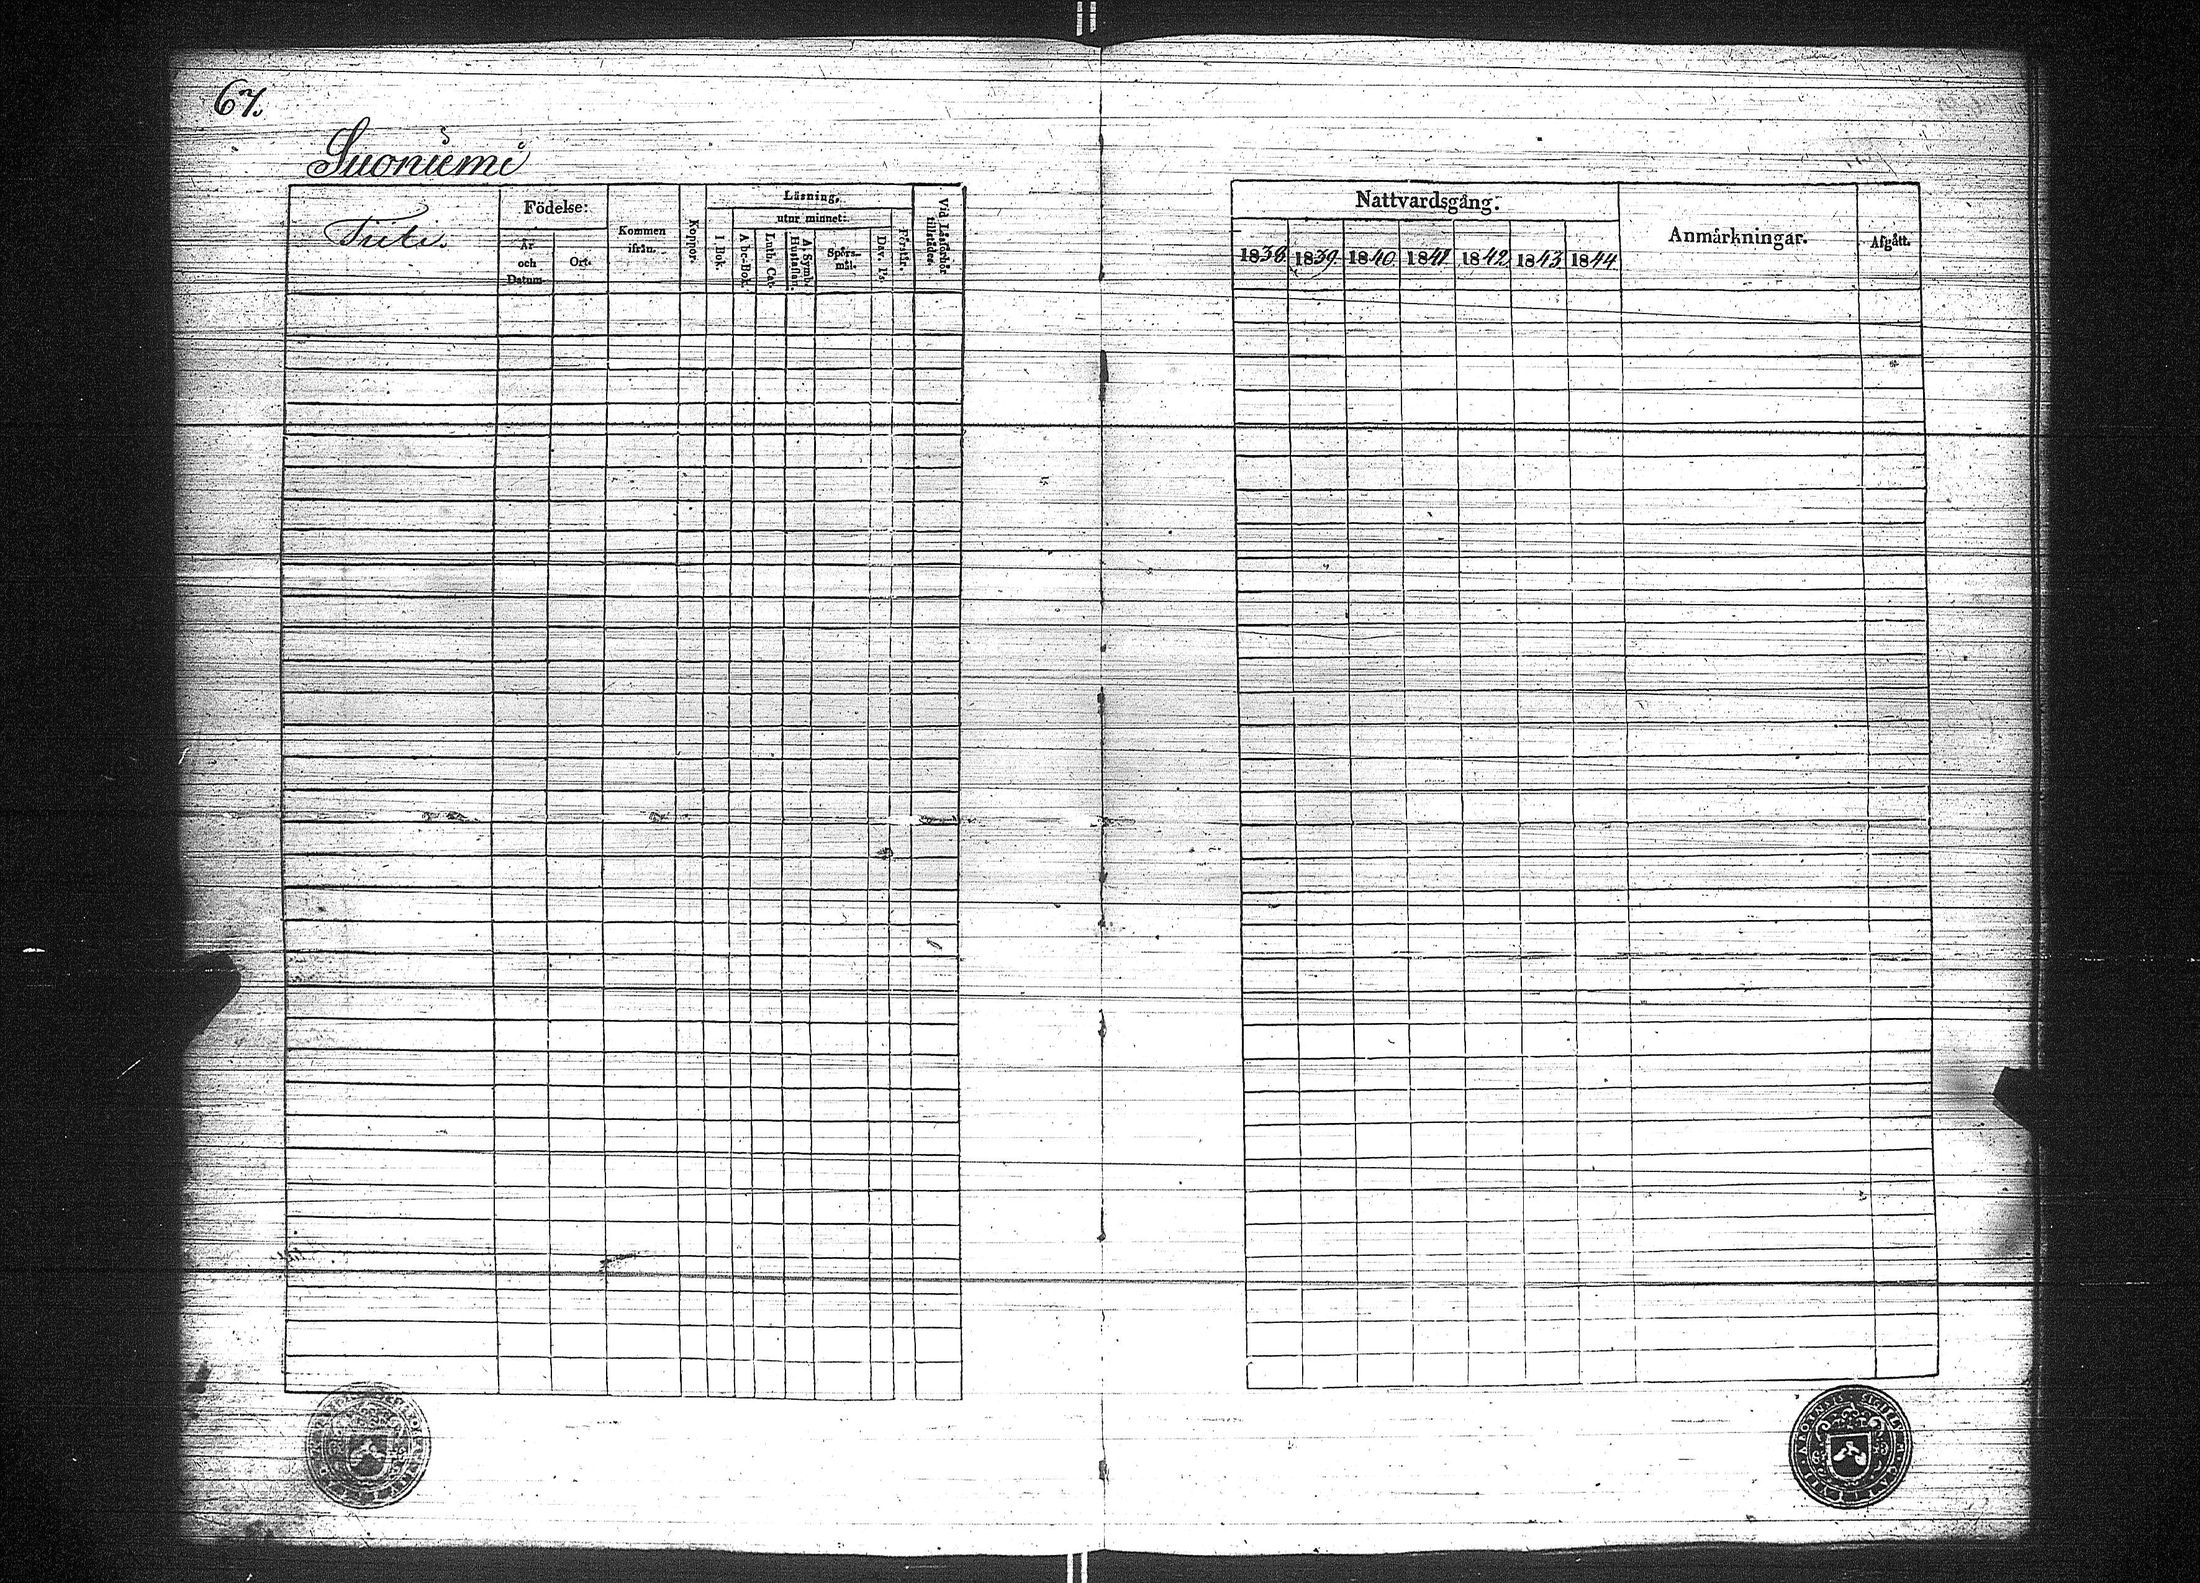 67.
Suoniemi
Födelse:
Kommen ifrån.
Koppor.
Läsning,
utur minnet:
Vid Läsförhör tillstädes.
År och Datum
Ort.
I Bok.
Abc-Bok.
Luth. Cat.
A. Symb. Hustaflan.
Spörs-mål.
Dav. Ps.
Förstår.
Nattvardsgång:
Anmärkningar.
Afgått.
1838 1839 1840 1841 1842 1843 1844